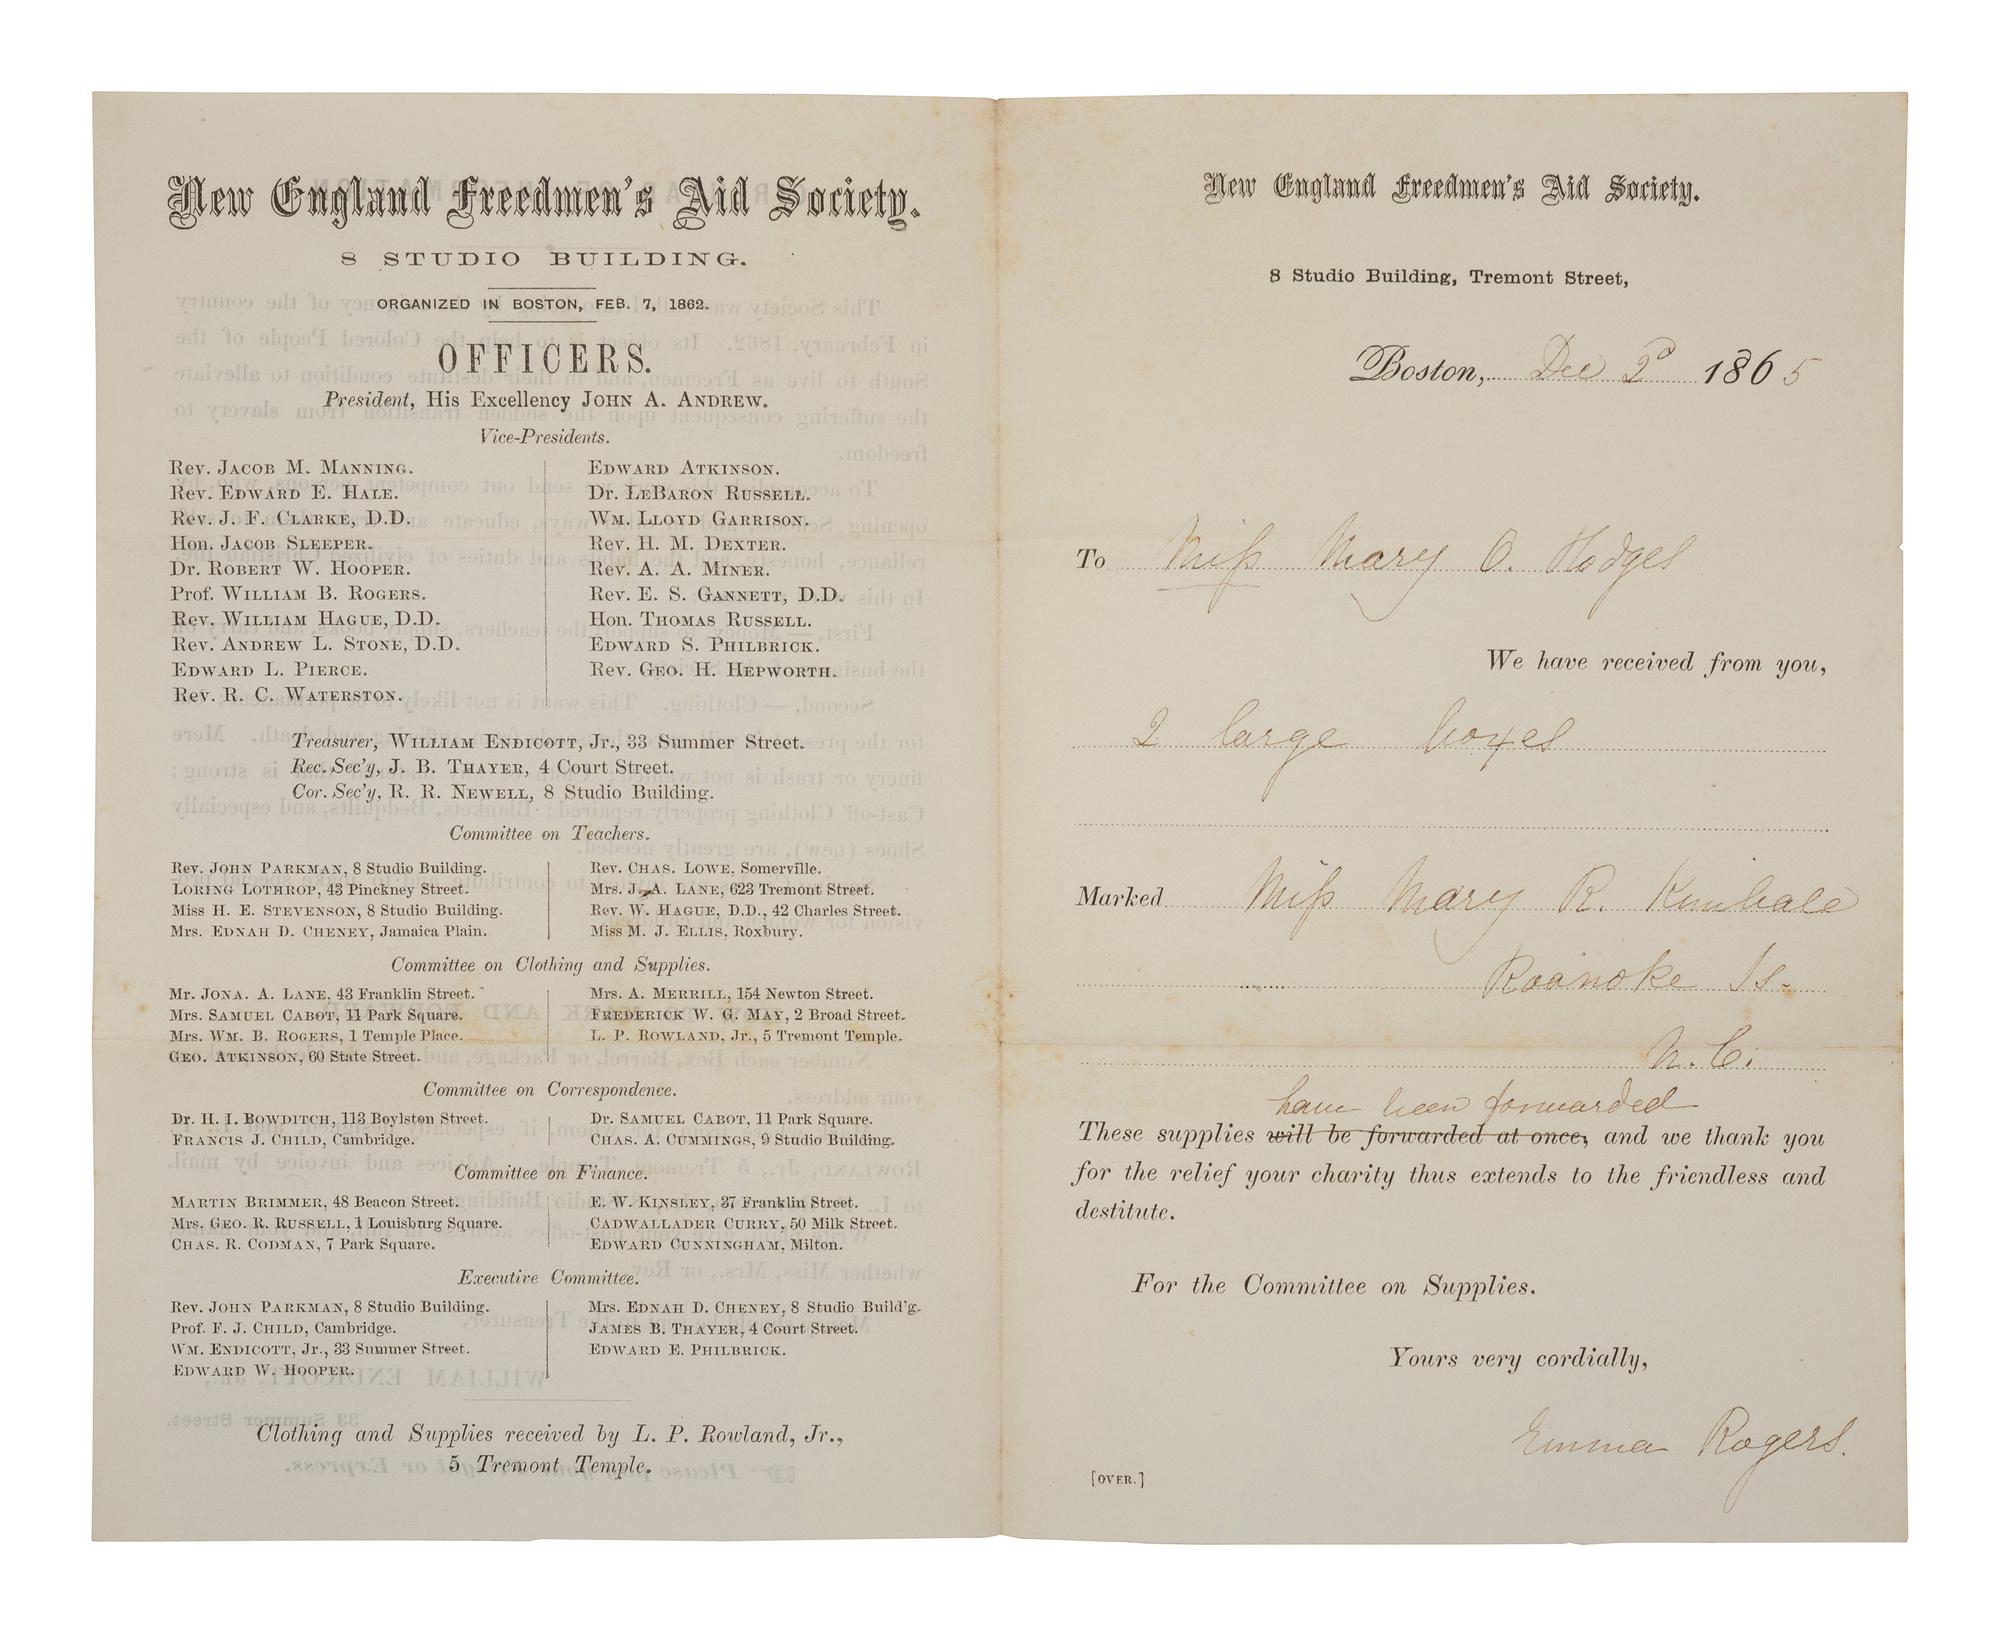 New England Freedmen's Aid Society.
8 STUDIO BUILDING.
ORGANIZED IN BOSTON, FEB. 7, 1862.
OFFICERS.
President, His Excellency JOHN A. ANDREW.
Vice-Presidents.
Rev. JACOB M. MANNING.
Rev. EDWARD E. HALE.
Rev. J. F. CLARKE, D.D.
Hon. JACOB SLEEPER.
Dr. ROBERT W. HOOPER.
Prof. WILLIAM B. ROGERS.
Rev. WILLIAM HAGUE, D.D.
Rev. ANDREW L. STONE, D.D.
EDWARD L. PIERCE.
Rev. R. C. WATERSTON.
EDWARD ATKINSON.
Dr. LEBARON RUSSELL.
WM. LLOYD GARRISON.
Rev. H. M. DEXTER.
Rev. A. A. MINER.
Rev. E. S. GANNETT, D.D.
Hon. THOMAS RUSSELL.
EDWARD S. PHILBRICK.
Rev. GEO. H. HEPWORTH.
Treasurer, WILLIAM ENDICOTT, Jr., 33 Summer Street.
Rec. Sec'y, J. B. THAYER, 4 Court Street.
Cor. Sec'y, R. R. NEWELL, 8 Studio Building.
Committee on Teachers.
Rev. JOHN PARKMAN, 8 Studio Building.
LORING LOTHROP, 43 Pinckney Street.
Miss H. E. STEVENSON, 8 Studio Building.
Mrs. EDNAH D. CHENEY, Jamaica Plain.
Rev. CHAS. LOWE, Somerville.
Mrs. J. A. LANE, 623 Tremont Street.
Rev. W. HAGUE, D.D., 42 Charles Street.
Miss M. J. ELLIS, Roxbury.
Committee on Clothing and Supplies.
Mr. JONA. A. LANE, 43 Franklin Street.
Mrs. SAMUEL CABOT, 11 Park Square.
Mrs. WM. B. ROGERS, 1 Temple Place.
GEO. ATKINSON, 60 State Street.
Mrs. A. MERRILL, 154 Newton Street.
FREDERICK W. G. MAY, 2 Broad Street.
L. P. ROWLAND, Jr., 5 Tremont Temple.
Committee on Correspondence.
Dr. H. I. BOWDITCH, 113 Boylston Street.
FRANCIS J. CHILD, Cambridge.
Dr. SAMUEL CABOT, 11 Park Square.
CHAS. A. CUMMINGS, 9 Studio Building.
Committee on Finance.
MARTIN BRIMMER, 48 Beacon Street.
Mrs. GEO. R. RUSSELL, 1 Louisburg Square.
CHAS. R. CODMAN, 7 Park Square.
E. W. KINSLEY, 37 Franklin Street.
CADWALLADER CURRY, 50 Milk Street.
EDWARD CUNNINGHAM, Milton.
Executive Committee.
Rev. JOHN PARKMAN, 8 Studio Building.
Prof. F. J. CHILD, Cambridge.
WM. ENDICOTT, Jr., 33 Summer Street.
EDWARD W. HOOPER.
Mrs. EDNAH D. CHENEY, 8 Studio Build'g.
JAMES B. THAYER, 4 Court Street.
EDWARD E. PHILBRICK.
Clothing and Supplies received by L. P. Rowland, Jr.,
5 Tremont Temple.
New England Freedmen's Aid Society.
8 Studio Building, Tremont Street,
Boston, Dec 2d 1865
To Miss Mary O. Hodges
We have received from you,
2 large boxes
Marked Miss Mary R. Kimball
Roanoke Is.
N.C.
have been forwarded
These supplies will be forwarded at once, and we thank you
for the relief your charity thus extends to the friendless and
destitute.
For the Committee on Supplies.
Yours very cordially,
Emma Rogers.
[OVER.]